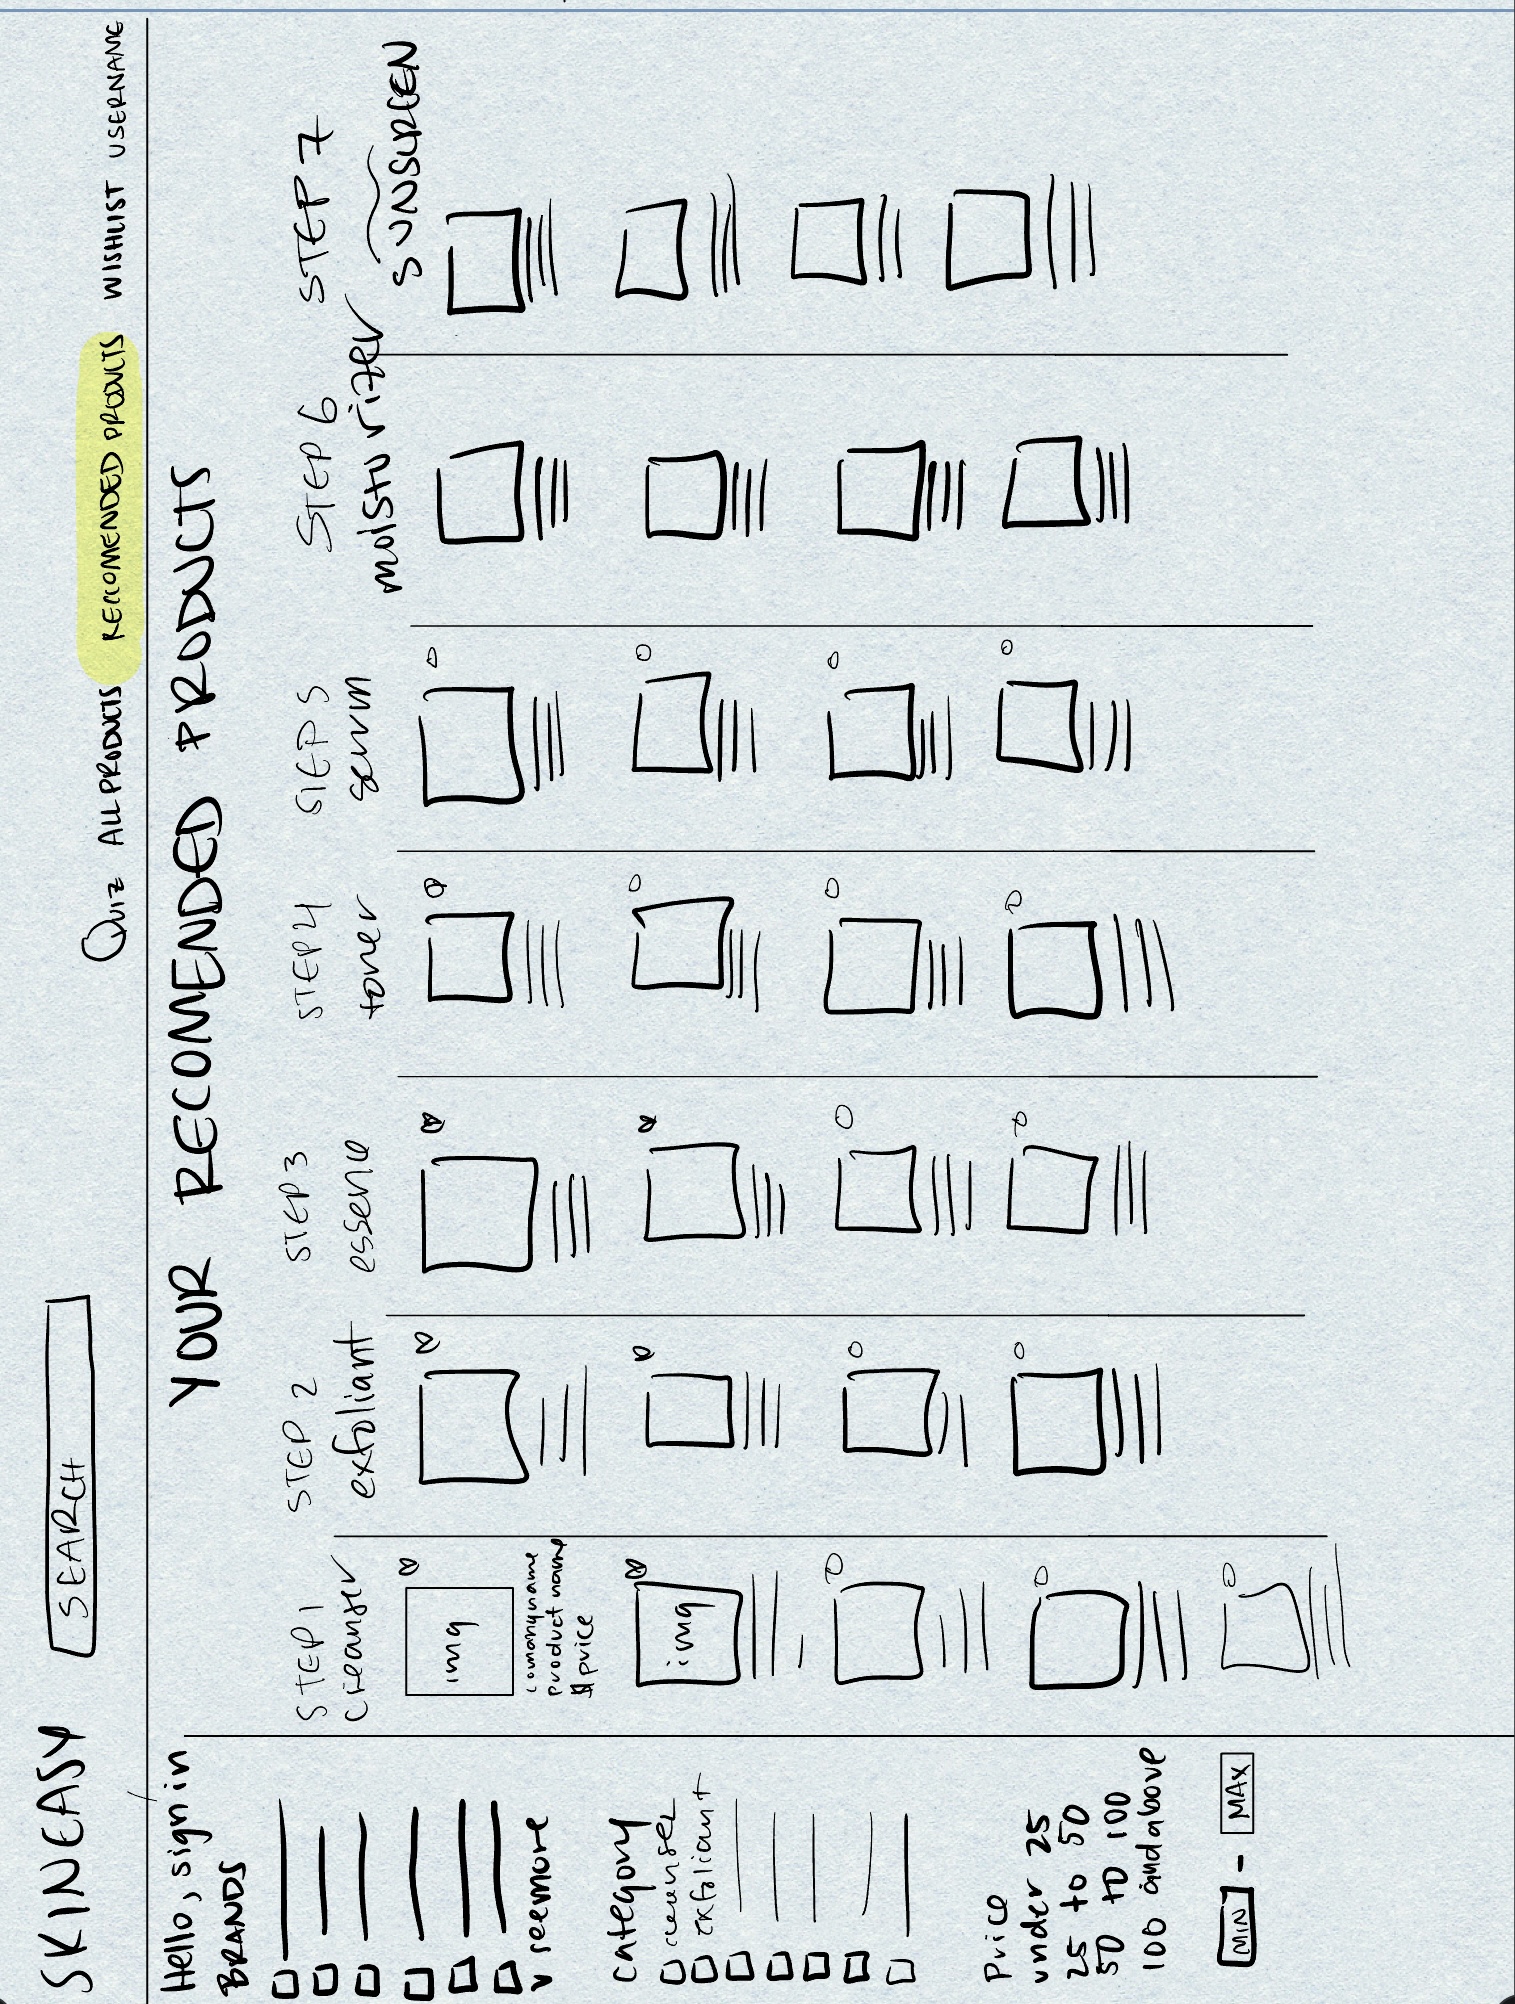 SKINEASY
SEARCH
QUIZ ALL PRODUCTS RECCOMENDED PRODUCTS WISHLIST USERNAME
Hello, sign in
BRANDS
v seemore
category
cleanser
exfoliant
Price
under 25
25 to 50
50 to 100
100 and above
MIN - MAX
YOUR RECOMENDED PRODUCTS
STEP 1
cleanser
img
comany name
product name
$ price
img
STEP 2
exfoliant
STEP 3
essence
STEP 4
toner
STEP 5
serum
STEP 6
moisturizer
STEP 7
SUNSCREEN